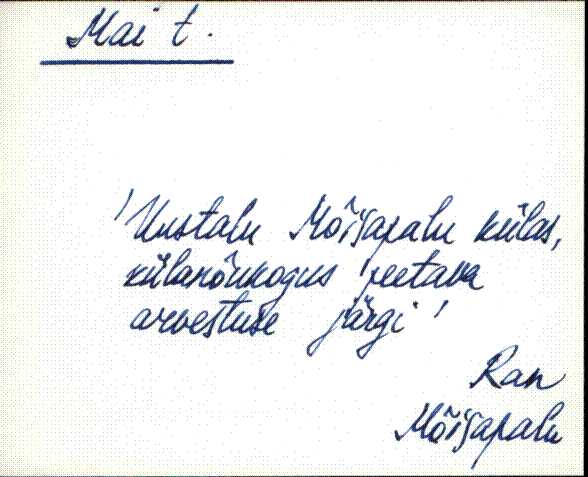 Mai t.
'Uustalu Mõisapalu külas,
külanõukogus peetava
arvestuse järgi'
Ran
Mõisapalu